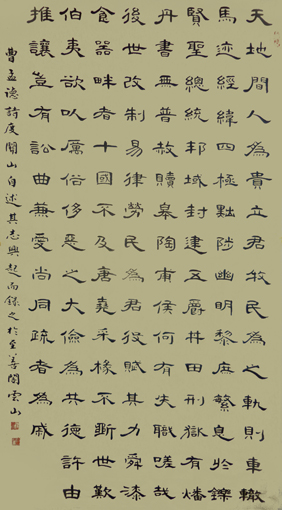 天地間人為貴立君牧民為之軌則車轍
馬迹經緯四極黜陟幽明黎庶繁息於鑠
賢聖總統邦域封建五爵井田刑獄有燔
丹書無普赦贖皋陶甫侯何有失職嗟哉
後世改制易律勞民為君役賦其力舜漆
食器畔者十國不及唐堯采椽不斲世歎
伯夷欲以厲俗侈惡之大儉為共德許由
推讓豈有訟曲兼愛尚同疏者為戚
曹孟德詩度關山自述其志興起而錄之於至善閣雲山